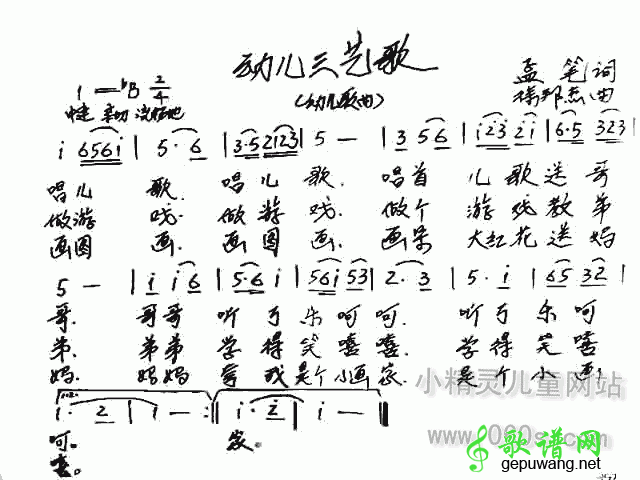 幼儿三艺歌
(幼儿歌曲)
1=♭B 2/4
孟笔词
曲
中速 亲切
i 6 5 6 i | 5 · 6 | 3 · 5 2 1 2 3 | 5 — | 3 5 6 | i 2 3 2 i | 6 · 5 3 2 3 |
唱儿 歌. 唱儿 歌. 唱首 儿歌送哥
做游 戏. 做游 戏. 做个 游戏教弟
画图 画. 画图 画. 画朵 大红花送妈
5 — | i i 6 | 5 · 6 i | 5 6 i 5 3 | 2 · 3 | 5 · i | 6 5 3 2 |
哥. 哥哥 听了 乐呵呵. 听了 乐呵
弟. 弟弟 学得 笑嘻嘻. 学得 笑嘻
妈. 妈妈 夸我 是个小画家. 是个小画
i · 2 | i — :| i · 2 | i — ‖
呵. 家.
小精灵儿童网站
www.060s.com
歌谱网
gepuwang.net